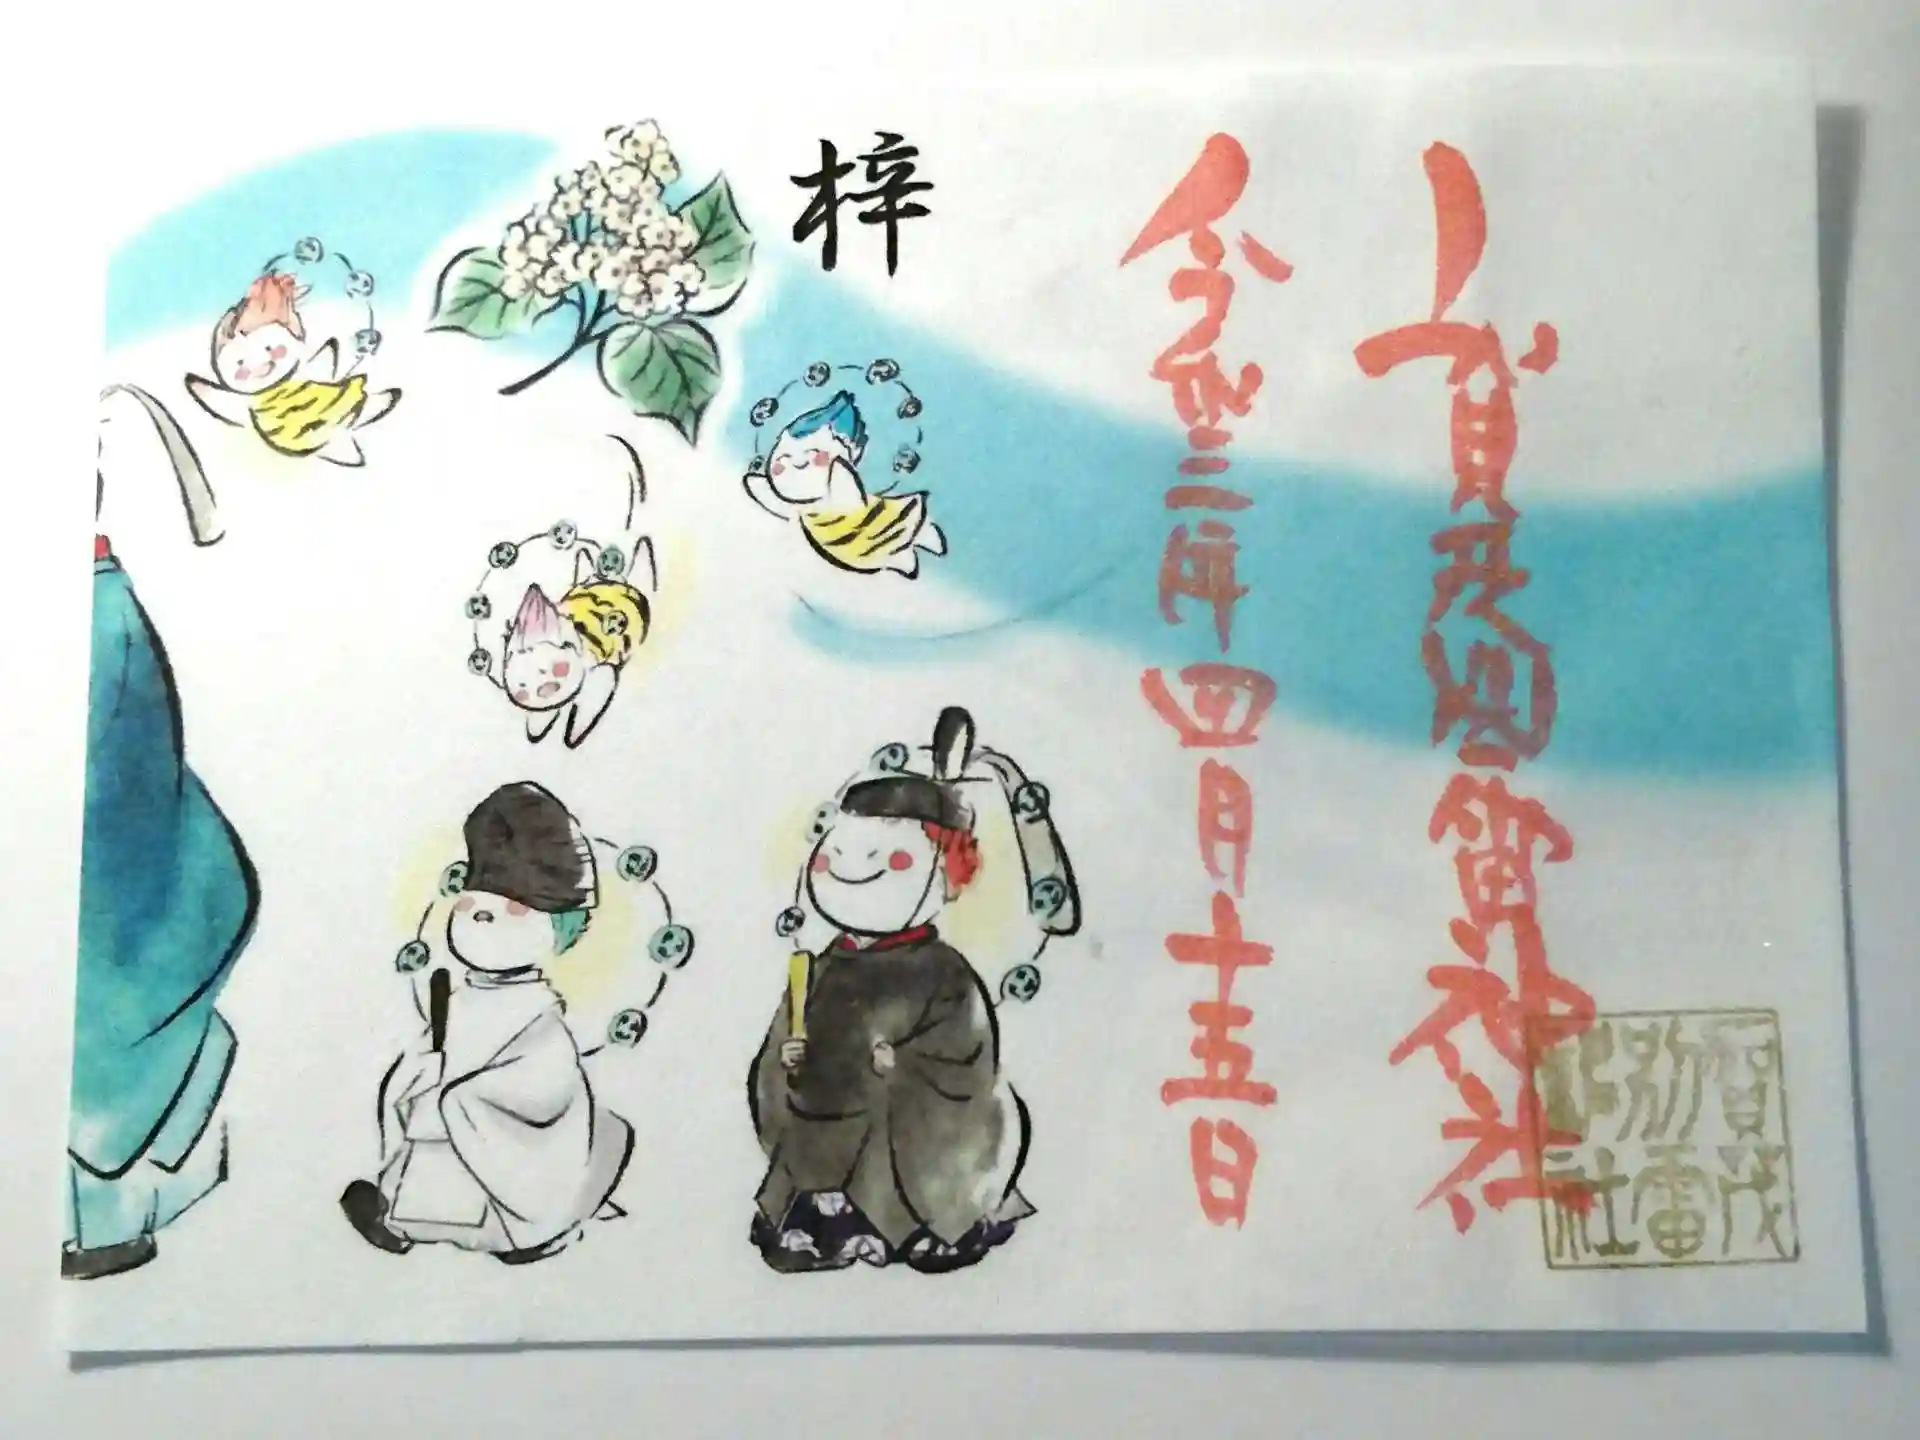 賀茂別雷神社
令和三年四月十五日
梓
賀茂
別雷
神社